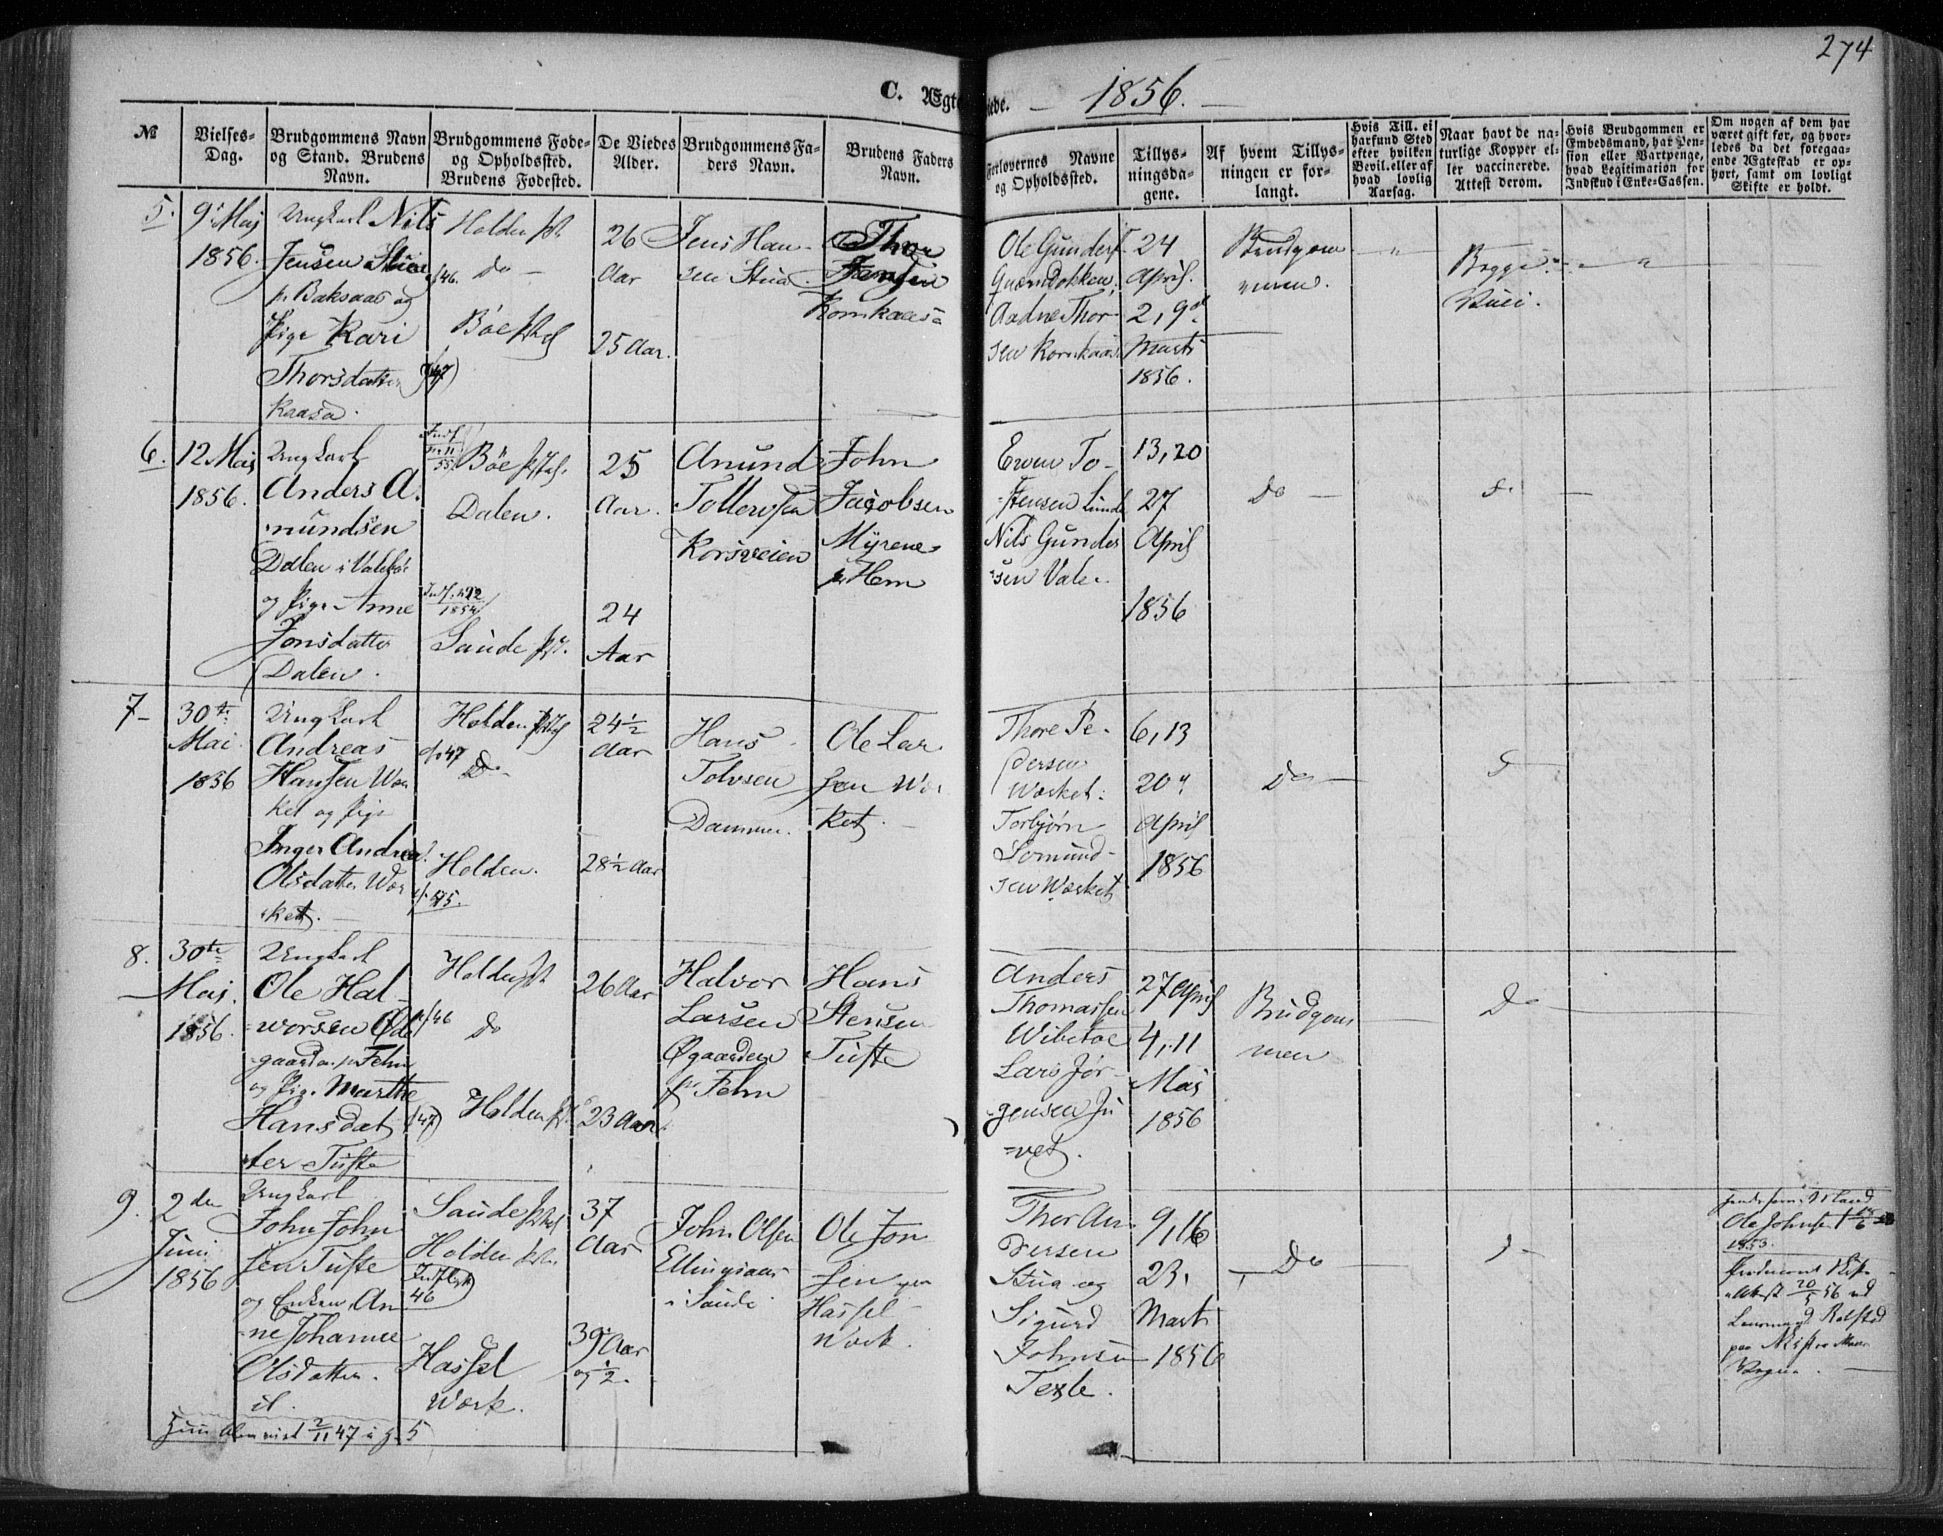 274
C. Ægte
iede. — 1856. —
№
Vielses-
Dag.
Brudgommens Navn
og Stand. Brudens
Navn.
Brudgommens Føde-
og Opholdssted.
Brudens Fødested.
De Viedes
Alder.
Brudgommens Fa-
ders Navn.
Brudens Faders
Navn.
Forlovernes Navne
og Opholdssted.
Tillys-
ningsda-
gene.
Af hvem Tillys-
ningen er for-
langt.
Hvis Till. ei
har fund Sted
efter hvilken
Bevil. eller af
hvad lovlig
Aarsag.
Naar havt de na-
turlige Kopper el-
ler vaccinerede.
Attest derom.
Hvis Brudgommen er
Embedsmand, har Pen-
sion eller Vartpenge,
hvad Legitimation for
Indskud i Enke-Cassen.
Om nogen af dem har
været gift før, og hvor-
ledes da det foregaa-
ende Ægteskab er op-
hørt, samt om lovligt
Skifte er holdt.
5.
9. Maj
1856.
Ungkarl Nils
Jensen Stua
p. Baksaas og
Pige Kari
Thorsdatter
Kaasa.
Holden
46. do —
Bøe
47
26
Aar
25 Aar.
Jens Han-
sen Stua.
Thor
Kornkaasa
Ole Gunders
Aadne Thor-
sen Kornkaas
24
April.
2, 9
Marts
1856.
Brudgom
men.
Begge
6.
12 Maj
1856.
Ungkarl
Anders A.
mundsen
Dalen i Valebøe
og Pige Anne
Jonsdatter
Dalen.
55
Bøe
Dalen.
1854
Saude
25
Aar.
24
Aar
Anund
Tollevsen
Korsveien
John
Jacobsen
Myrene
Hem
Even To-
stensen Lunde
Nils Gunder
sen Vale.
13, 20
27
April
1856
Do —
d. —
7-
30te
Mai
1856
Ungkarl
Andreas
Hansen Wær
ket og Pige
Inger Andrea
Olsdatter Wær
ket. —
Holden
47
Do
Holden.
24½
Aar
28½ Aar
Hans
Tolvsen
Dammen.
Ole Lar
sen Wær
ket. —
Thore Pe-
dersen
Wærket.
Torbjørn
Somund-
sen Wærket
6, 13
20
April
1856
Do —
8.
30te
Maj.
1856.
Ungkarl
Ole Hal-
vorsen Øde
gaarden p. Fehn
og Pige Marthe
Hansdat-
ter Tufte
Holden
46
do
47
Holden
26 Aar
23 Aar
Halvor
Larsen
Øgaarden
p. Fehn
Hans
Stensen
Tufte
Anders
Thomassen
Wibetoe
Lars Jør-
gensen Ju
=vet.
27 April
4, 11
Maj
1856
Brudgom
men
Do
9.
2den
Juni
1856
Ungkarl
John John
sen Tufte
og Enken An
-ne Johanne
Olsdatter.
Saude
Holden
46
Hassel
Værk.
37
Aar
39 Aar
og ½.
John Olsen
Ellingsaas
i Saude
Ole Jon
sen
Hassel-
Værk.
Thor An-
dersen
Stua og
Sigurd
Johnsen
Texle.
9, 16
23.
Marts
1856
Do
Ole Johnsen
1853.
20/5 56 ved
47 i 5